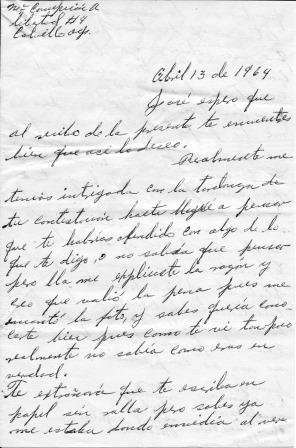 Ma Concepción A
Libertad #9
Abril 13 de 1964
José espero que
al recibo de la presente te encuentres
bien que así lo deseo.
Realmente me
tenias intrigada con la tardanza de
tu contestación hasta llegué a pensar
que te habías ofendido con algo de lo
que te digo, o no sabía que pensar
pero ya me explicaste la razón y
creo que valió la pena pues me
encantó la foto, y sabes quería cono-
certe bien pues como te vi tan poco
realmente no sabía como eras en
verdad.
Te extrañará que te escriba en
papel sin raya pero sabes ya
me estaba dando envidia al ver